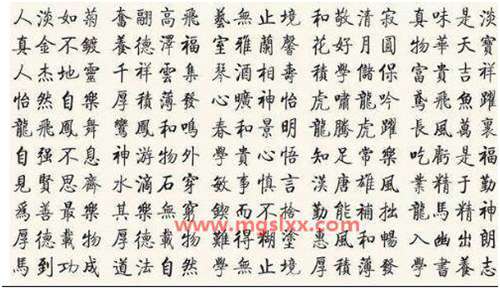 人淡如菊 奮翮高飛 藝無止境 和敬清寂 真味是淡
真金不鍍 養德澤福 室雅蘭馨 花好月圓 物華天寶
人杰地靈 千祥雲集 琴酒相壽 學儲保 富貴吉祥
怡然自樂 厚積薄發 心曠神怡 虎嘯龍吟 鳶飛魚躍
龍飛鳳舞 鸞鳳和鳴 春和景明 龍騰虎躍 長風萬裏
自强不息 神游物外 學貴心悟 知足常樂 吃虧是福
見賢思齊 水滴石穿 敏事慎言 漢唐雄風 業精于勤
爲善最樂 其樂無窮 鍥而不捨 勤能補拙 龍馬精神
www.mgslxx.com
厚德載物 厚德 物 難得糊塗 惠風和暢 入幽出朗
馬到功成 道法自然 學無止境 厚積薄發 學書養志